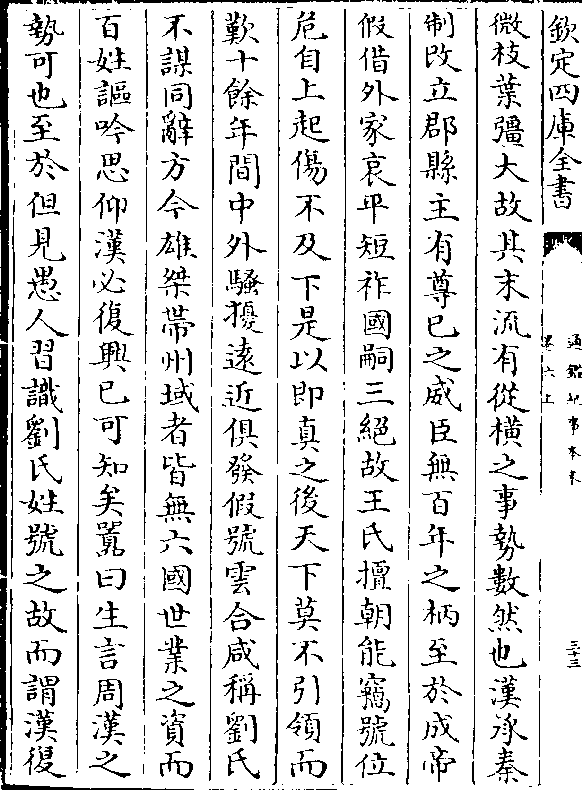 欽定四庫全書
通鑑紀事本末
卷六上
三十三
微枝葉彊大故其末流有從橫之事勢數然也漢承秦
制改立郡縣主有專已之威臣無百年之柄至於成帝
假借外家哀平短祚國嗣三絕故王氏擅朝能竊號位
危自上起傷不及下是以即真之後天下莫不引領而
歎十餘年間中外騷擾遠近俱發假號雲合咸稱劉氏
不謀同辭方今雄桀帶州域者皆無六國世業之資而
百姓謳吟思仰漢必復興已可知矣囂曰生言周漢之
勢可也至於但見愚人習識劉氏姓號之故而謂漢復